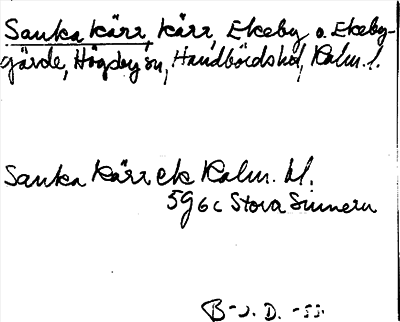 Sanka kärr, kärr, Ekeby o. Ekeby-
gärde, Högsby sn, Handbörds hd, Kalm. l.
Sanka kärr ek Kalm. bl.
5 g 6 c Stora Sinnern
B-J. D. -55.